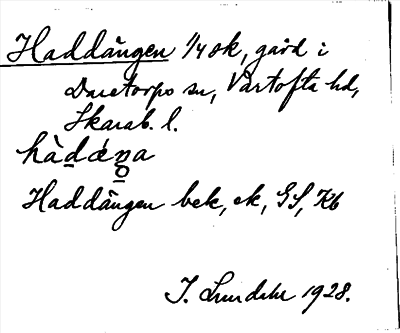 Haddängen 1/4 ok, gård i
Daretorps sn, Vartofta hd,
Skarab. l.
hàdǽŋa
Haddängen bek, ek, GS, Kb
I. Lundahl 1928.